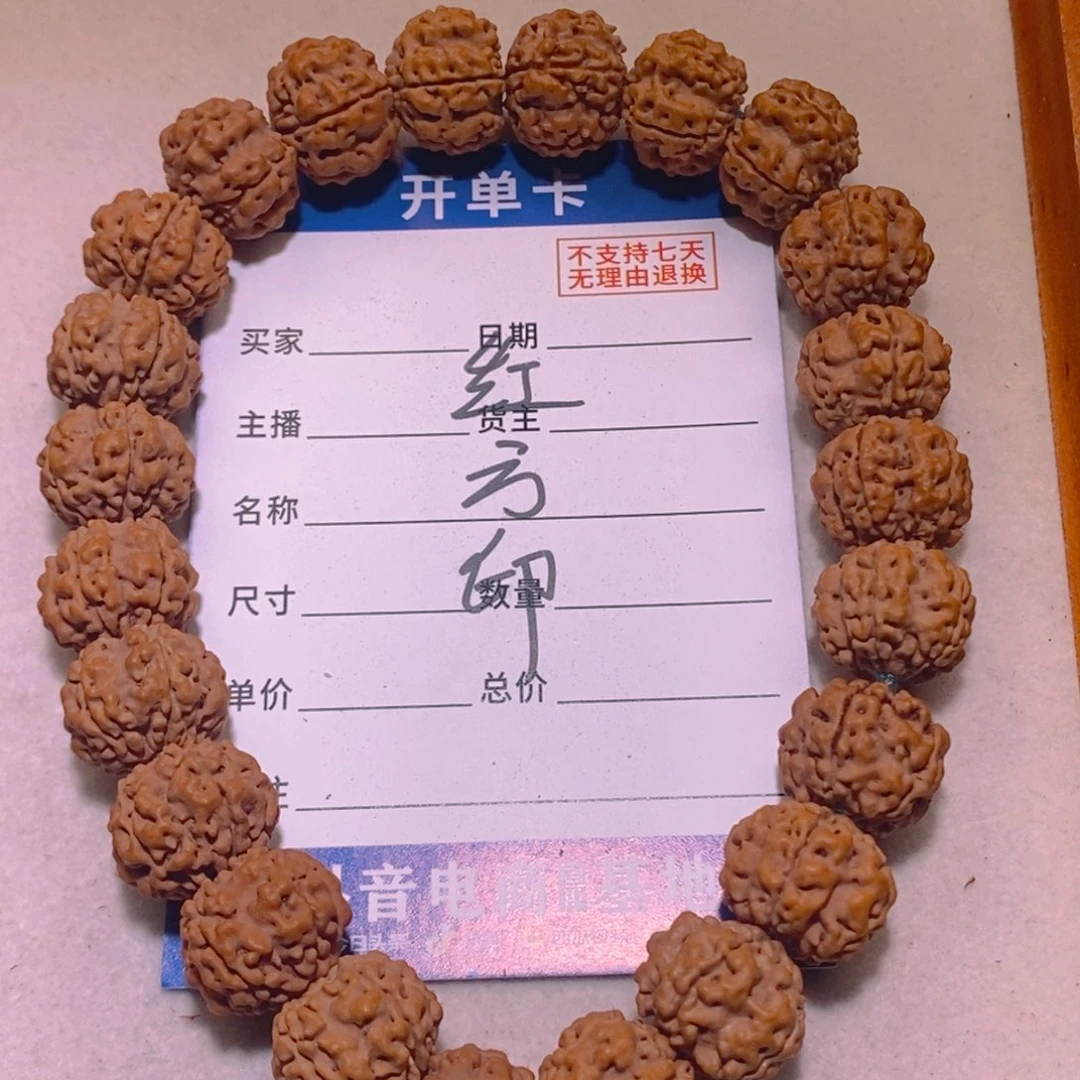 开单卡
不支持七天
无理由退换
买家 日期
红
主播 货主
方
名称
印
尺寸 数量
单价 总价
音电商 基地
今日头条